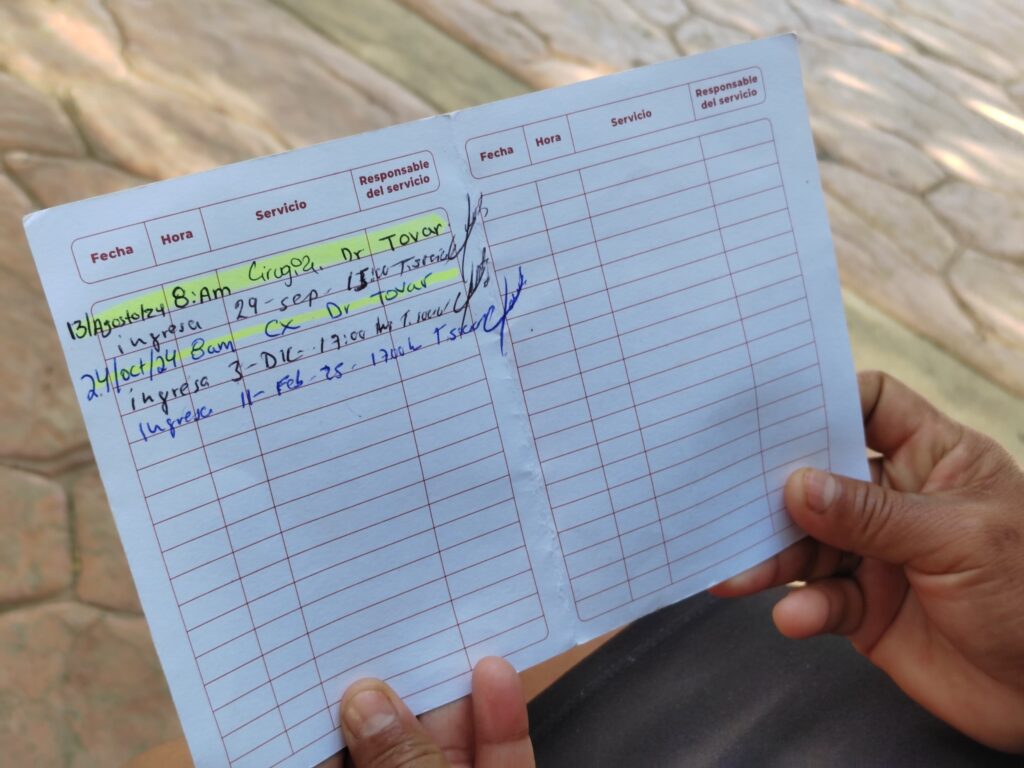 Fecha Hora Servicio Responsable del servicio
13/Agosto/24 8:Am Cirugía. Dr Tovar
ingresa 29-sep- 15:00
24/oct/24 8am Cx Dr Tovar
ingresa 3-DIC- 17:00
Ingresa 11-Feb-25- 17:00h
Fecha Hora Servicio Responsable del servicio